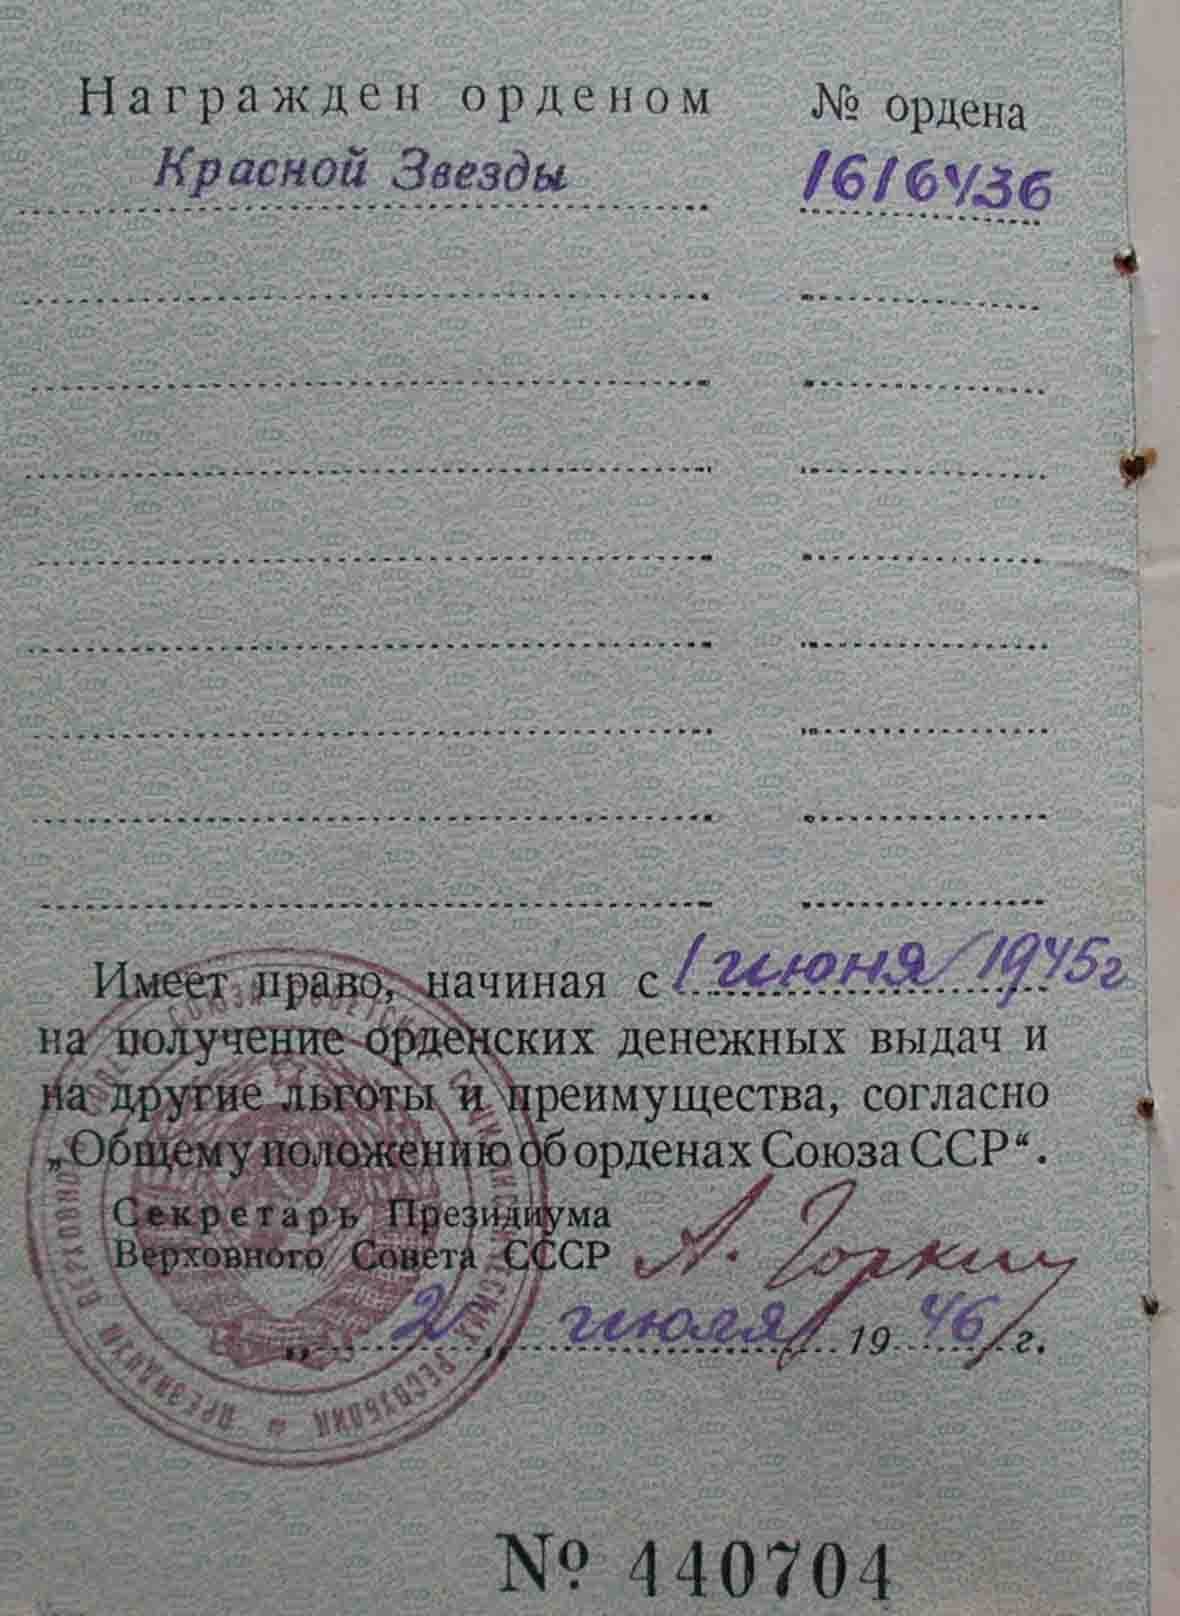 Награжден орденом № ордена
Красной Звезды 1616436
Имеет право, начиная с 1 июня 1945г
на получение орденских денежных выдач и
на другие льготы и преимущества, согласно
„Общему положению об орденах Союза ССР“.
Секретарь Президиума
Верховного Совета СССР А. Горкин
„2 „ июля 19 46 г.
ПРЕЗИДИУМ ВЕРХОВНОГО СОВЕТА СОЮЗА СОВЕТСКИХ СОЦИАЛИСТИЧЕСКИХ РЕСПУБЛИК
№ 440704